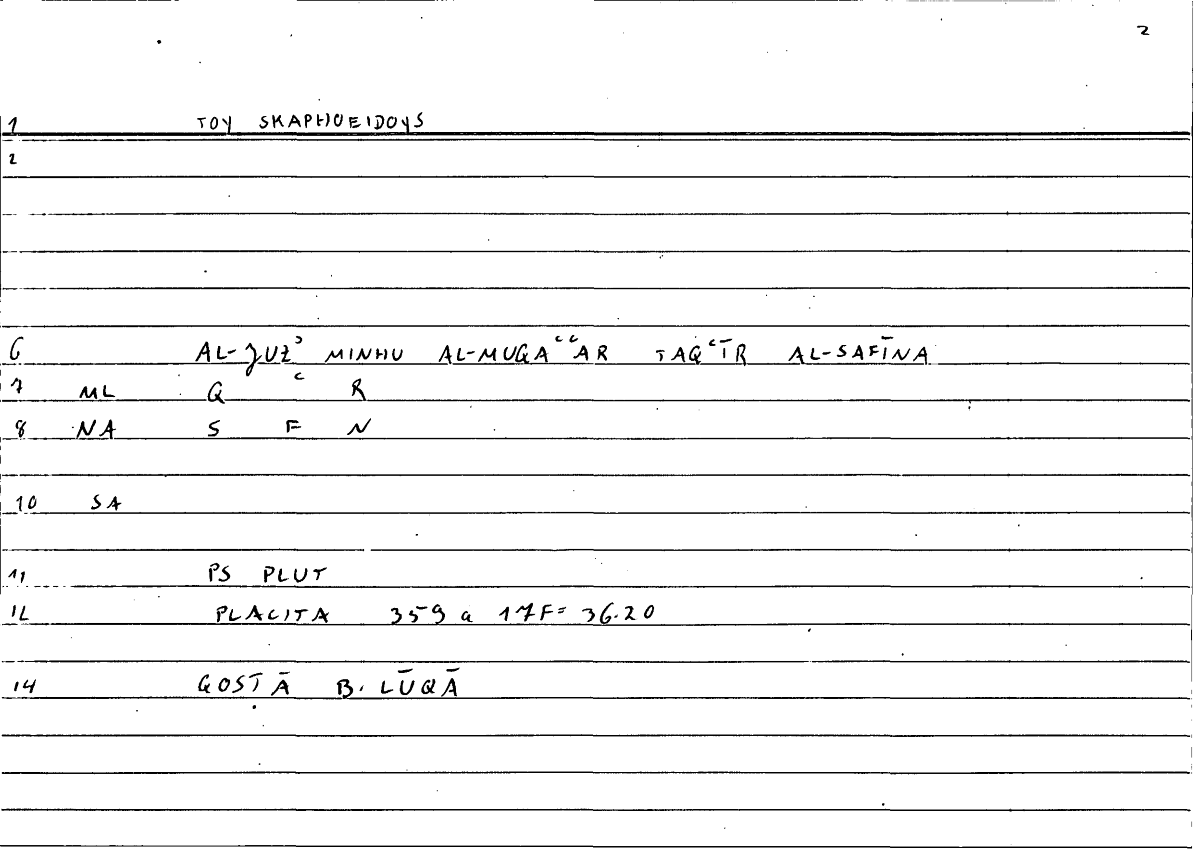 2
1 TOY SKAPHOEIDOYS
2
6 AL-ǦUZʾ MINHU AL-MUQAʿʿAR TAQʿĪR AL-SAFĪNA
7 ML Q ʿ R
8 NA S F N
10 SA
11 PS PLUT
12 PLACITA 359 a 17F= 36.20
14 QOSṬĀ B. LŪQĀ